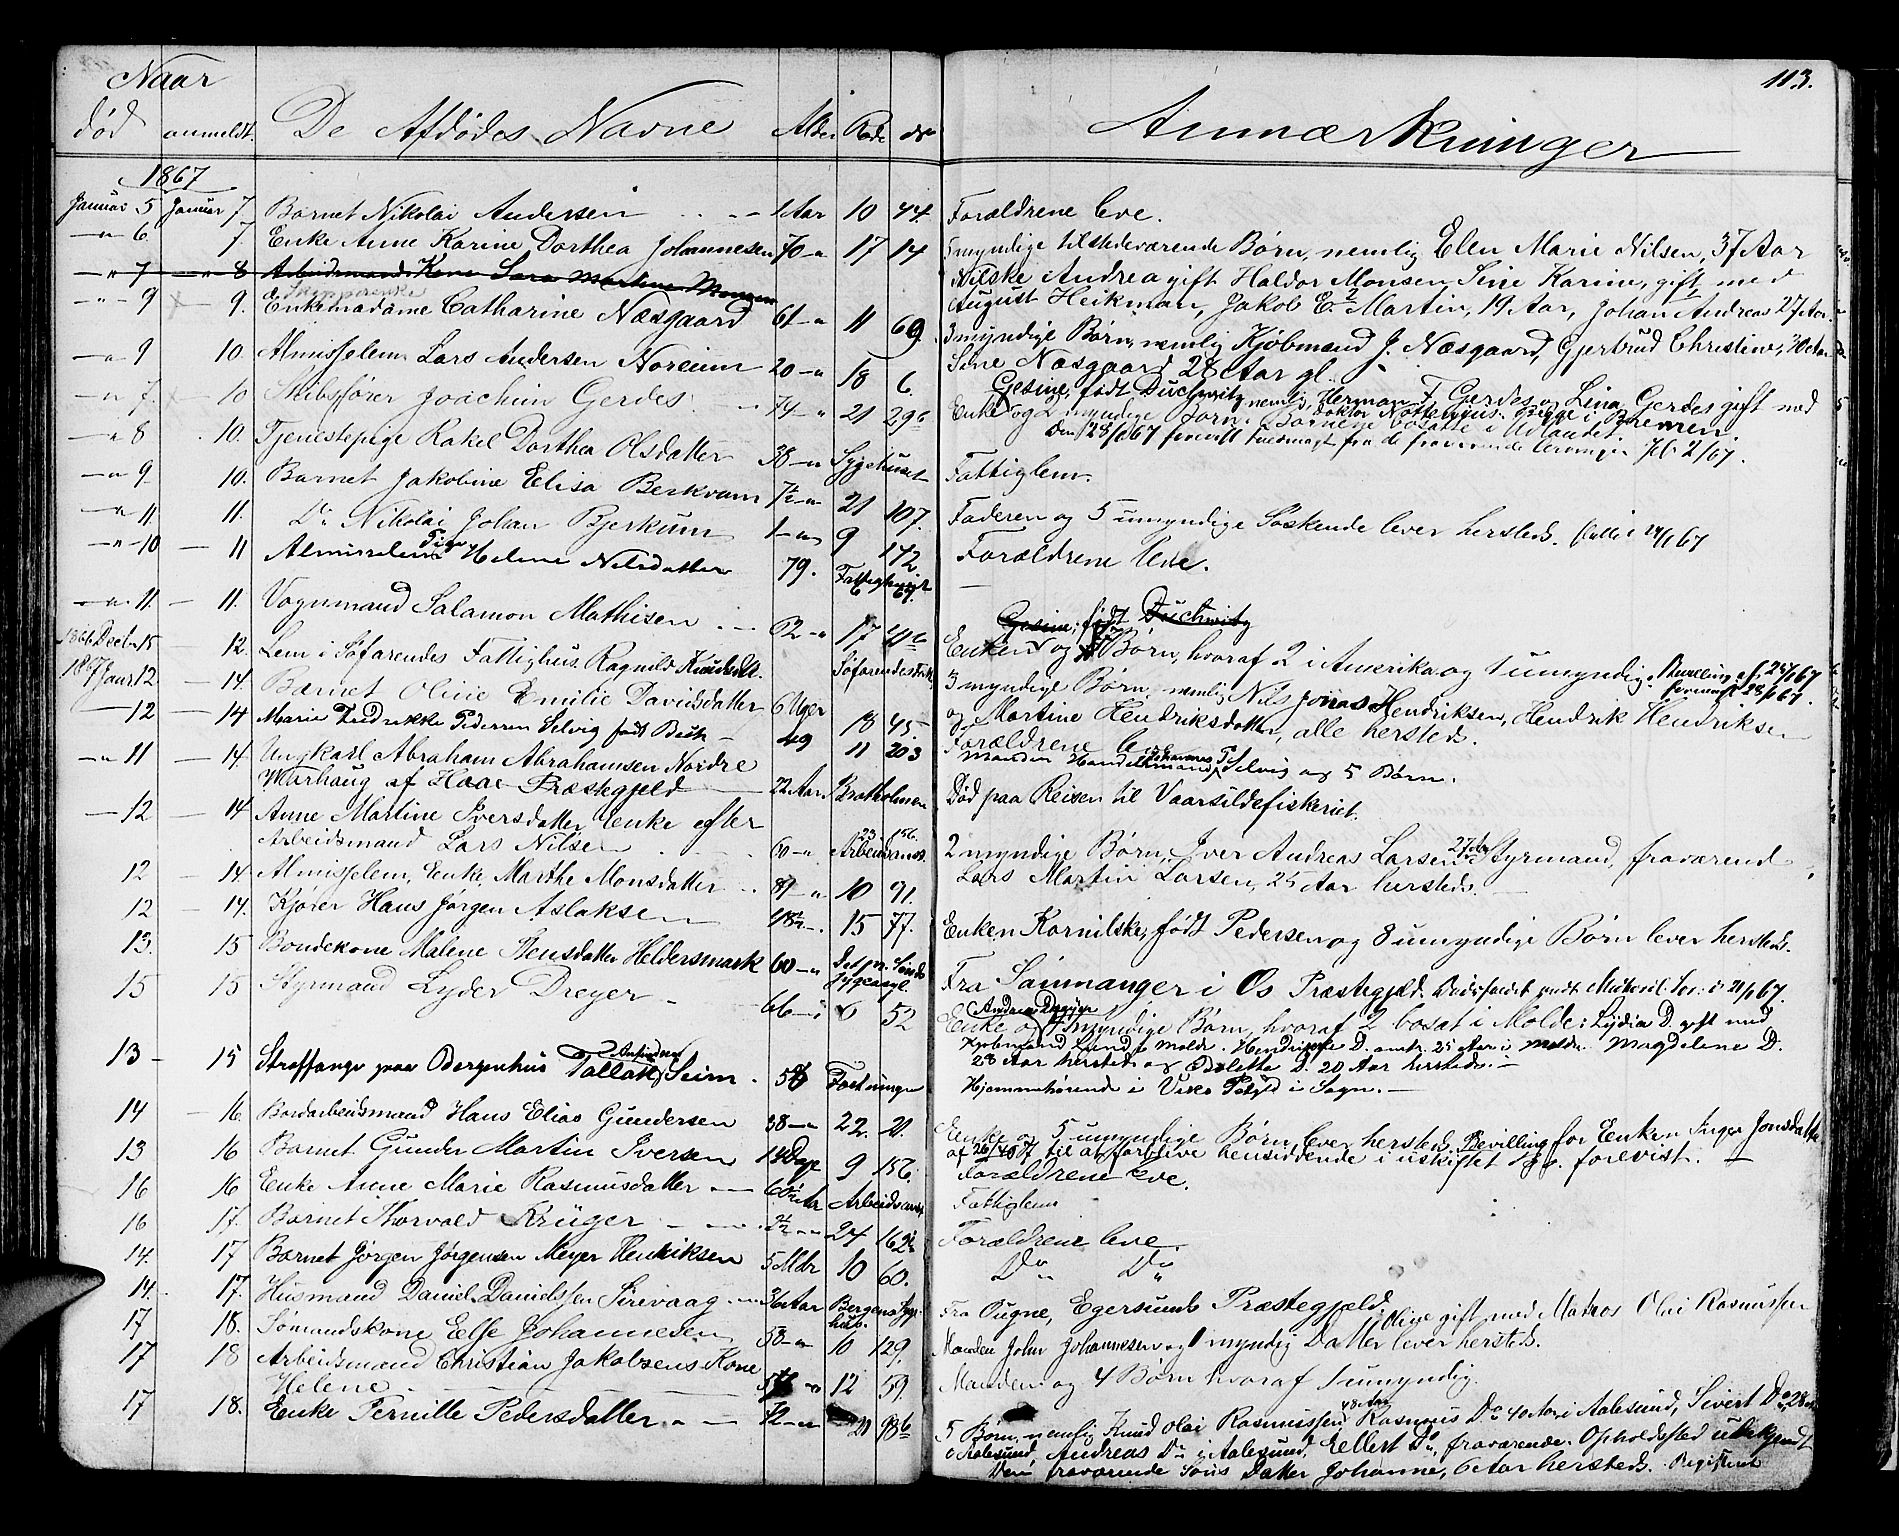 113.
Naar
død anmeldt. De Afdødes Navne Alder Rode No
Anmærkninger
1867
Januar 5 Januar 7. Barnet Nikolai Andersen 1 Aar 10 44. Forældrene leve.
" 6. 7. Enke Anne Karine Dorthea Johannesen 70 " 17 14 5 myndige tilstedeværende Børn, nemlig Elen Marie Nilsen, 37 Aar
" 7 " 8 Arbeidsmands Kone Sara Martine Monsen
Nilske Andrea gift Haldor Monsen, Sine Karine, gift med
August Heikman, Jakob E. Martin, 19 Aar, Johan Andreas 27 Aar.
Skipperenke
" 9 9. Enkemadame Catharine Næsgaard 61 " 11 69. 3 myndige Børn, nemlig Kjøbmand J. Næsgaard, Gjertrud Christine, 30 Aar
Sine Næsgaard 28 Aar gl.
" 9 10. Almisselem Lars Andersen Noreim 20 " 18 6.
" 7. 10 Skibsfører Joachim Gerdes 74 " 21 29 b
Gesine, født Duchwitz
Enke og 2 myndige Børn, nemlig, Herman F. Gerdes og Lina Gerdes gift med
Doktor Nottenius. Begge i Bremen.
Børnene bosatte i Udlandet.
Den 28/1 67 forevist fuldmagt fra de fraværende Arvinger 2/67.
" 8 10. Tjenestepige Rakel Dorthea Olsdatter 38 " Sygehuset Fattiglem.
" 9 10. Barnet Jakobine Elisa Berkvam 7½ " 21 107. Faderen og 5 umyndige Søskende lever hersteds.
" 11 11. Do Nikolai Johan Bjerkum 1 " 9 172 Forældrene leve.
" 10 11 Almisselem Pige Helene Nilsdatter 79. Fattighuset
" 11. 11. Vognmand Salamon Mathisen 62 " 17
Gesine, født Duchwitz
Enken og Børn, hvoraf 2 i Amerika og 1 umyndig. Bevilling af 25/1 67
forevist 28/1 67.
1866 Decbr 15 12. Lem i Søfarendes Fattighus Ragnild Knudsdtr. Søfarendes
3 myndige Børn, nemlig Nils Jonas Hendriksen, Hendrik Hendriksen
og Martine Hendriksdatter, alle hersteds.
1867 Janr 12 14. Barnet Oline Emilie Davidsdatter 6 Uger 18 45. Forældrene leve
12 14 Marie Fredrikke Pedersen Selvig født Buch 49 11 203 Manden Handelsmand Johannes P. Selvig og 5 Børn.
" 11 14. Ungkarl Abraham Abrahamsen Nordre
Warhaug af Haae Præstegjeld 22 Aar Bratholmen Død paa Reisen til Vaarsildefiskeriet.
12 14 Anne Martine Iversdatter, Enke efter
Arbeidsmand Lars Nilsen 60 " 23. 156. Arbeidsanst. 2 myndige Børn, Iver Andreas Larsen 27 Aar Styrmand, fraværend
Lars Martin Larsen, 25 Aar hersteds.
12 14. Almisselem, Enke, Marthe Monsdatter 89 " 10 91.
12 14. Kjører Hans Jørgen Aslaksen 48½ 15 77. Enken Kornilske, født Pedersen og 8 umyndige Børn lever hersteds.
13. 15 Bondekone Malene Stensdatter Heldersmark 60 " Fra Sammanger i Os Præstegjeld.
15 15 Styrmand Lyder Dreyer 66 " 6 52
Enke og 4 myndige Børn, hvoraf 2 bosat i Molde: Lydia D. gift med
Kjøbmand Lund i Molde. Hendrikke D. 25 Aar i Molde Magdelene D.
28 Aar hersteds og Odelette D. 20 Aar hersteds.
13 15 Straffange paa Bergenhus Tallak Seim. 56 Fæstningen Hjemmehørende i Viks Pstgjld i Sogn.
14 16. Bordarbeidsmand Hans Elias Gundersen 38 " 22. 21. Enke og 5 umyndige Børn, lever hersteds. Bevilling for Enken Inger Jonsdatter
af 26/4 67 til at forblive hensiddende i uskiftet Bo forevist.
13 16 Barnet Gunder Martin Iversen 14 Dage 9 156. Forældrene leve.
16 16 Enke Anne Marie Rasmusdatter Aar Arbeidsanst Fattiglem
16 17. Barnet Thorvald Krüger 2½ " 24 162 Forældrene leve.
14. 17 Barnet Jørgen Jørgensen Meyer Henriksen 5 Mdr 10 60. Do Do
14. 17. Husmand Daniel Danielssen Sirevaag 36 Aar Bergens Sygehus. Fra Ougne, Egersunds Præstegjeld
17 18. Sømandskone Else Johannesen 58 " 10 129. Manden John Johannesen og 1 myndig Datter lever hersteds.
Oline gift med Matros Olai Rasmussen
17 18 Arbeidsmand Christian Jakobsens Kone
Helene " 12 59. Manden og 4 Børn hvoraf 1 umyndig.
17 18. Enke Pernille Pedersdatter 72 " 21
5 Børn, nemlig Knud Olai Rasmussen 48 Aar Rasmus Do 40 Aar i Aalesund, Sivert Do 28
i Aalesund, Andreas Do i Aalesund, Ellert Do, fraværende. Opholdssted ubekjendt
Den fraværende Søns Datter Johanne, 6 Aar hersteds. Registreret